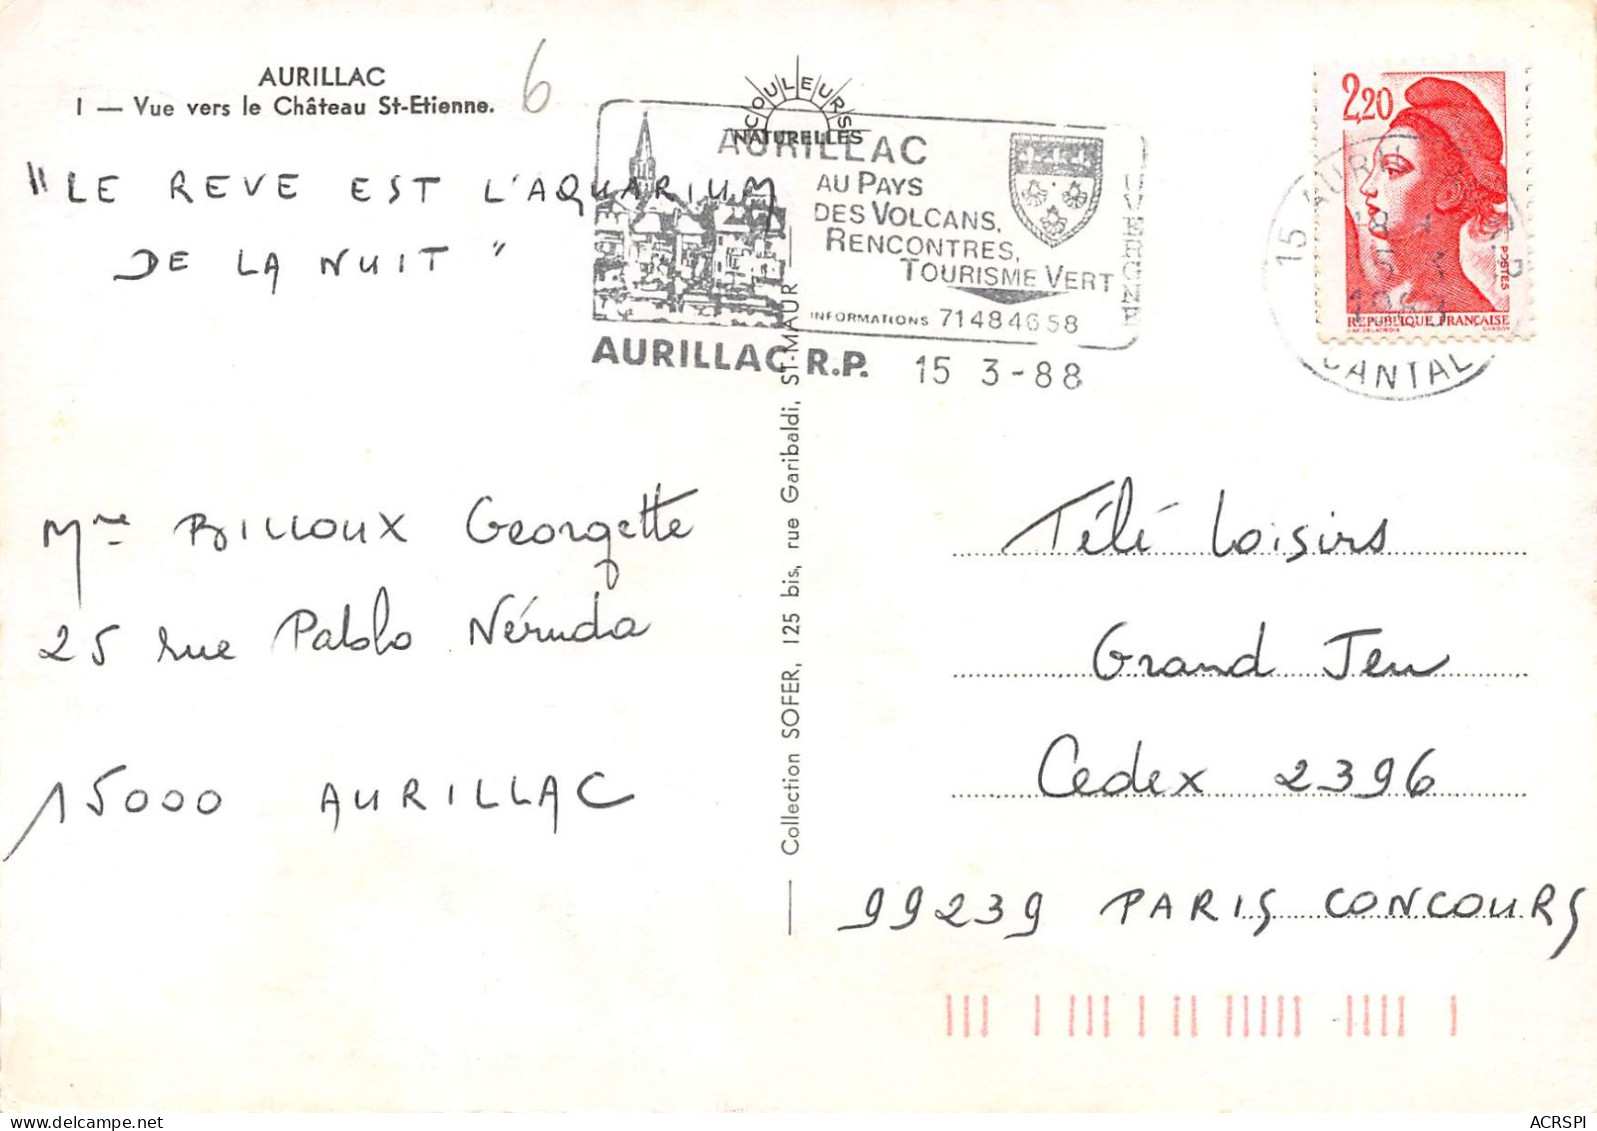 AURILLAC
1 — Vue vers le Château St-Etienne.
6
COULEURS
NATURELLES
"LE REVE EST L'AQUARIUM
DE LA NUIT"
AURILLAC
AU PAYS
DES VOLCANS,
RENCONTRES,
TOURISME VERT
INFORMATIONS 71484658
AURILLAC R.P. 15 3-88
2,20
POSTES
REPUBLIQUE FRANÇAISE
15 AURILLAC
CANTAL
Mme BILLOUX Georgette
25 rue Pablo Néruda
15000 AURILLAC
Collection SOFER, 125 bis, rue Garibaldi, ST-MAUR
Télé Loisirs
Grand Jeu
Cedex 2396
99239 PARIS CONCOURS
ACRSPI